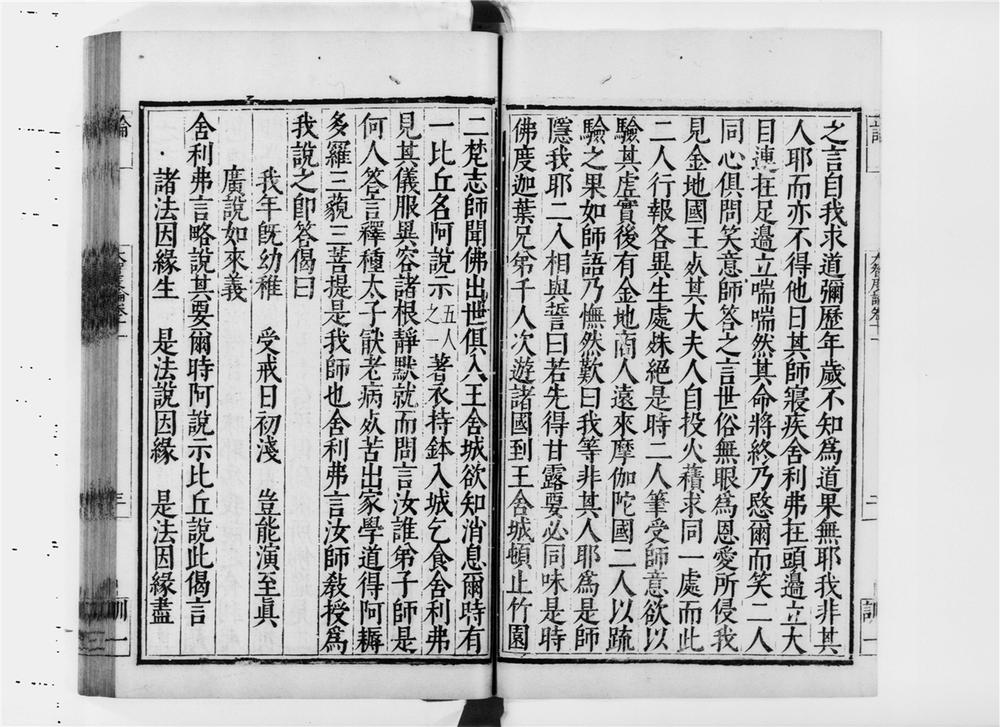 之言自我求道彌歷年歲不知為道果無耶我非其
人耶而亦不得他日其師寢疾舍利弗在頭邊立大
目連在足邊立喘喘然其命將終乃愍爾而笑二人
同心俱問笑意師答之言世俗無眼為恩愛所侵我
見金地國王死其大夫人自投火𧂐求同一處而此
二人行報各異生處殊絕是時二人筆受師意欲以
驗其虛實後有金地商人遠來摩伽陀國二人以疏
驗之果如師語乃憮然歎曰我等非其人耶為是師
隱我耶二人相與誓曰若先得甘露要必同味是時
佛度迦葉兄弟千人次遊諸國到王舍城頓止竹園
二梵志師聞佛出世俱入王舍城欲知消息爾時有
一比丘名阿說示五人之一著衣持鉢入城乞食舍利弗
見其儀服異容諸根靜默就而問言汝誰弟子師是
何人答言釋種太子厭老病死苦出家學道得阿耨
多羅三藐三菩提是我師也舍利弗言汝師教授為
我說之即答偈曰
我年既幼稚 受戒日初淺 豈能演至真
廣說如來義
舍利弗言略說其要爾時阿說示比丘說此偈言
諸法因緣生 是法說因緣 是法因緣盡
大智度論卷十一
訓一